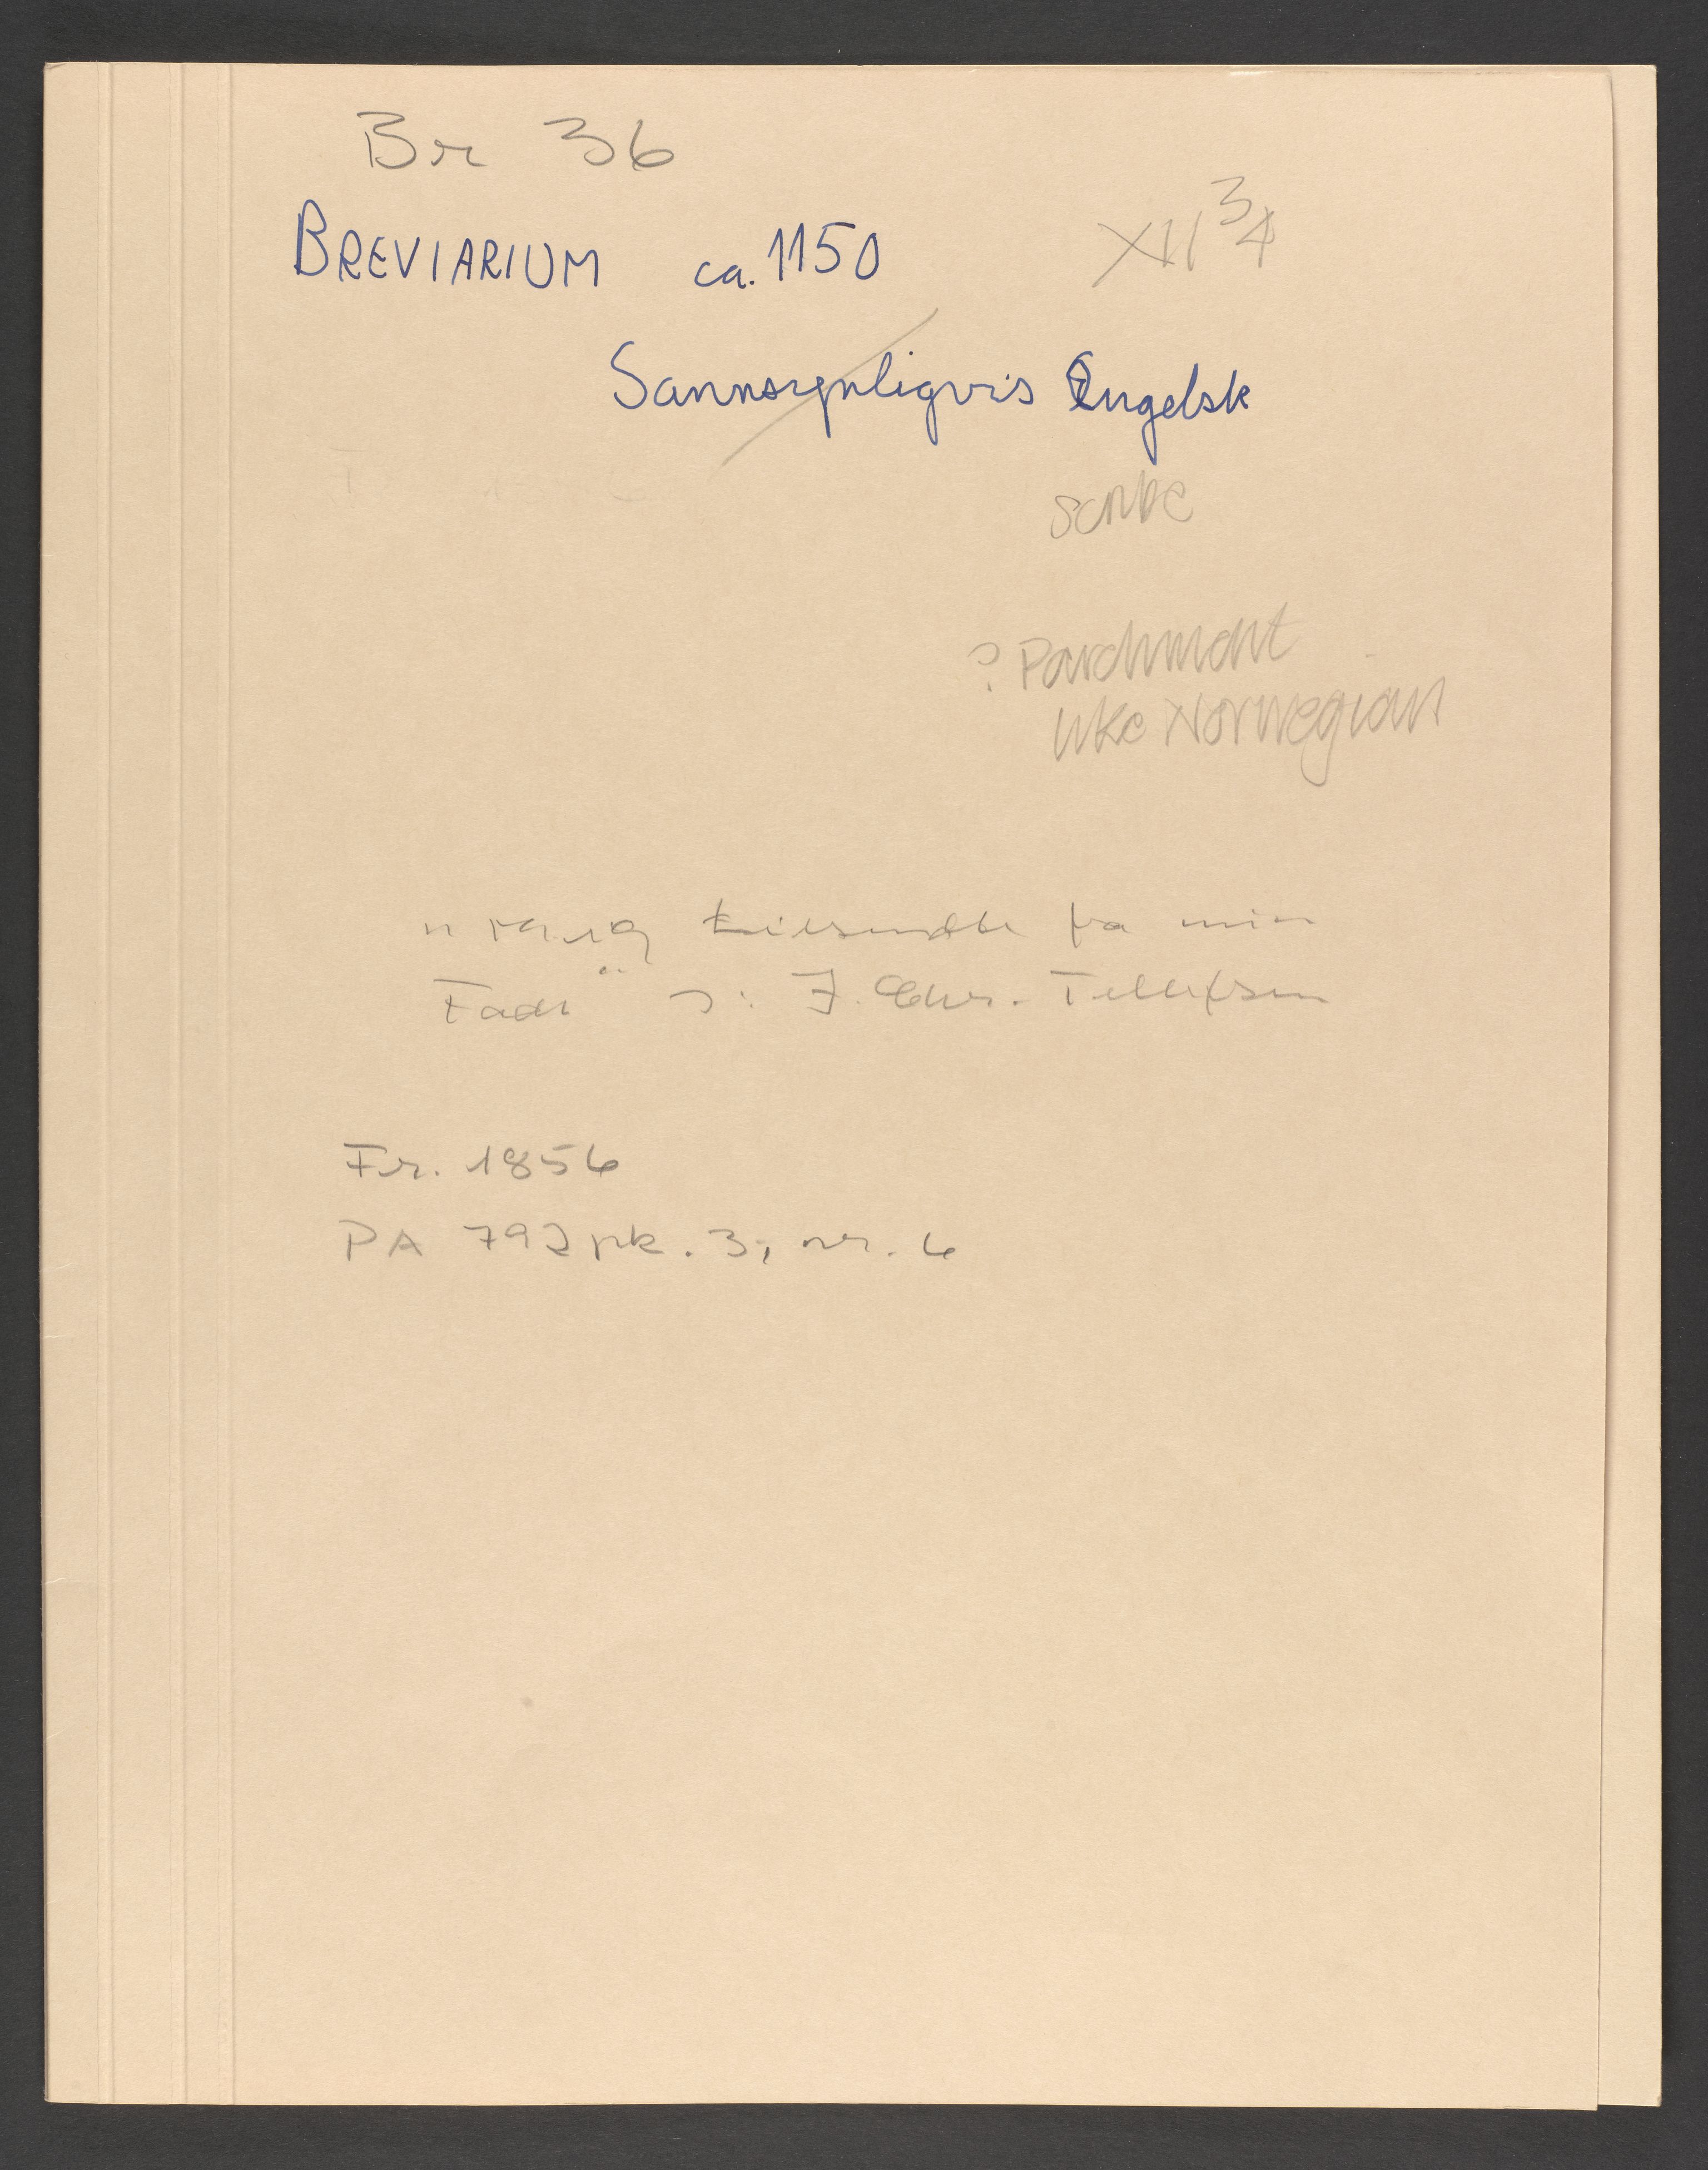 Br 36
BREVIARIUM ca. 1150 XII 3/4
Sannsynligvis Engelsk
scribe
? Parchment
like Norwegian
" mig tilsendte fra min
Fader" ɔ: J. Chr. Tellefsen
Fr. 1856
PA 792 pk. 3, nr. 6